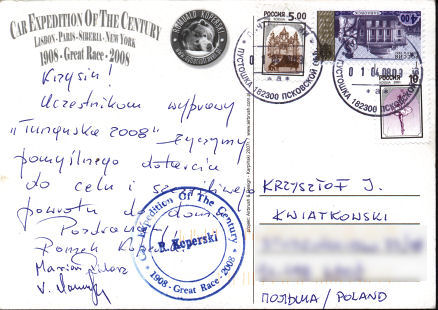 CAR EXPEDITION OF THE CENTURY
LISBON - PARIS - SIBERIA - NEW YORK
1908 - GREAT RACE - 2008
ROMUALD KOPERSKI
Krzysiu!
Uczestnikom wyprawy
"Tunguska 2008" życzymy
pomyślnego dotarcia
do celu i szczęśliwej
powrotu do domu
Pozdrawia
Romek Koperski
Marian
Car Expedition Of The Century
R. Koperski
1908 - Great Race - 2008
РОССИЯ 5.00
РОССИЯ
4.00
10
ПУСТОШКА 182300 ПСКОВСКОЙ
ПУСТОШКА 182300 ПСКОВСКОЙ
KRZYSZTOF J.
KWIATKOWSKI
ПОЛЬША / POLAND